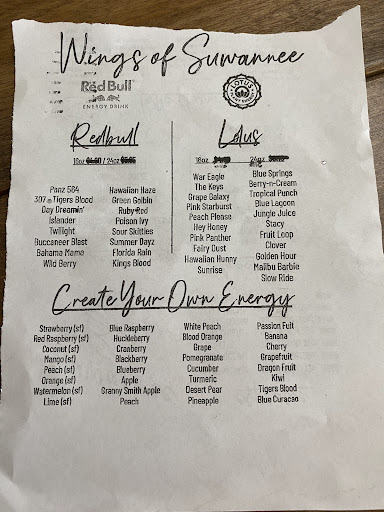 Wings of Suwannee
Red Bull
ENERGY DRINK
LOTUS
Redbull
Lotus
16oz / 24oz
16oz 24oz
Panz 564
307 Tigers Blood
Day Dreamin'
Islander
Twilight
Buccaneer Blast
Bahama Mama
Wild Berry
Hawaiian Haze
Green Goblin
Ruby Red
Poison Ivy
Sour Skittles
Summer Dayz
Florida Rain
Kings Blood
War Eagle
The Keys
Grape Galaxy
Pink Starburst
Peach Please
Hey Honey
Pink Panther
Fairy Dust
Hawaiian Hunny
Sunrise
Blue Springs
Berry-n-Cream
Tropical Punch
Blue Lagoon
Jungle Juice
Stacy
Fruit Loop
Clover
Golden Hour
Malibu Barbie
Slow Ride
Create Your Own Energy
Strawberry (sf)
Red Raspberry (sf)
Coconut (sf)
Mango (sf)
Peach (sf)
Orange (sf)
Watermelon (sf)
Lime (sf)
Blue Raspberry
Huckleberry
Cranberry
Blackberry
Blueberry
Apple
Granny Smith Apple
Peach
White Peach
Blood Orange
Grape
Pomegranate
Cucumber
Turmeric
Desert Pear
Pineapple
Passion Fuit
Banana
Cherry
Grapefruit
Dragon Fruit
Kiwi
Tigers Blood
Blue Curacao